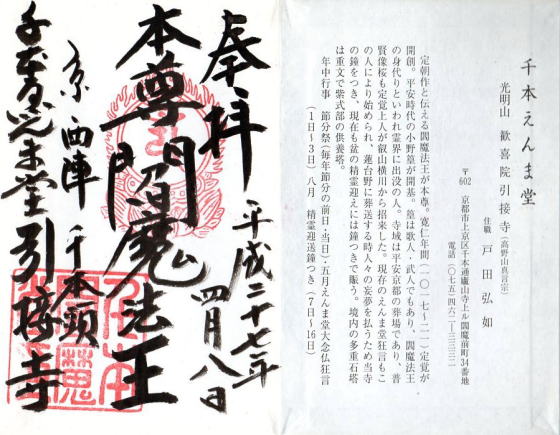 奉拝
平成二十七年
四月八日
本尊
閻魔法王
京西陣 千本頭
千本えんま堂 引接寺
千本えんま堂
光明山 歓喜院 引接寺 (高野山真言宗)
住職 戸田弘如
〒602 京都市上京区千本通廬山寺上ル閻魔前町34番地
電話(〇七五)四六二―三三三二
定朝作と伝える閻魔法王が本尊。寛仁年間(一〇一七〜二一)定覚が
開創。平安時代の小野篁が開基。篁は歌人、武人でもあり、閻魔法王
の身代りといわれ霊界に出没の人。寺域は平安京都の葬場であり、普
賢像桜も定覚上人が叡山横川から招来した。現存のえんま堂狂言もこ
の人により始められ、蓮台野に葬送する時人々の妄夢を払うため当寺
の鐘をつき、現在も盆の精霊迎えには鐘つきで賑う。境内の多重石塔
は重文で紫式部の供養塔。
年中行事 節分祭(毎年節分の前日・当日)・五月えんま堂大念仏狂言
(1日〜3日) 八月 精霊迎送鐘つき(7日〜16日)